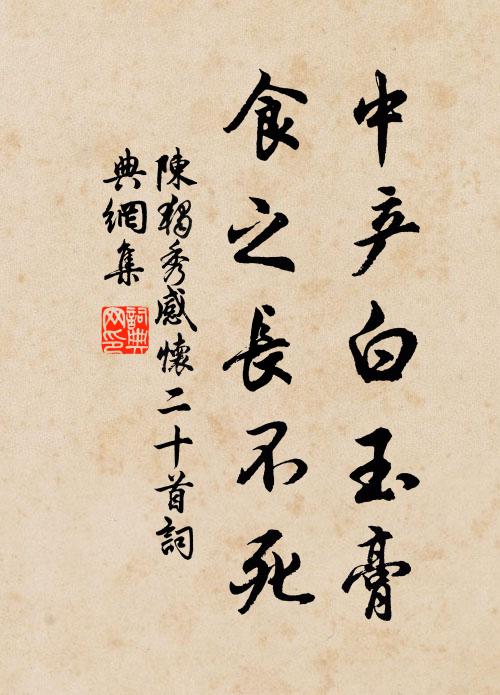 中产白玉膏
食之长不死
陳獨秀感懷二十首詞
典網集
詞典
网印